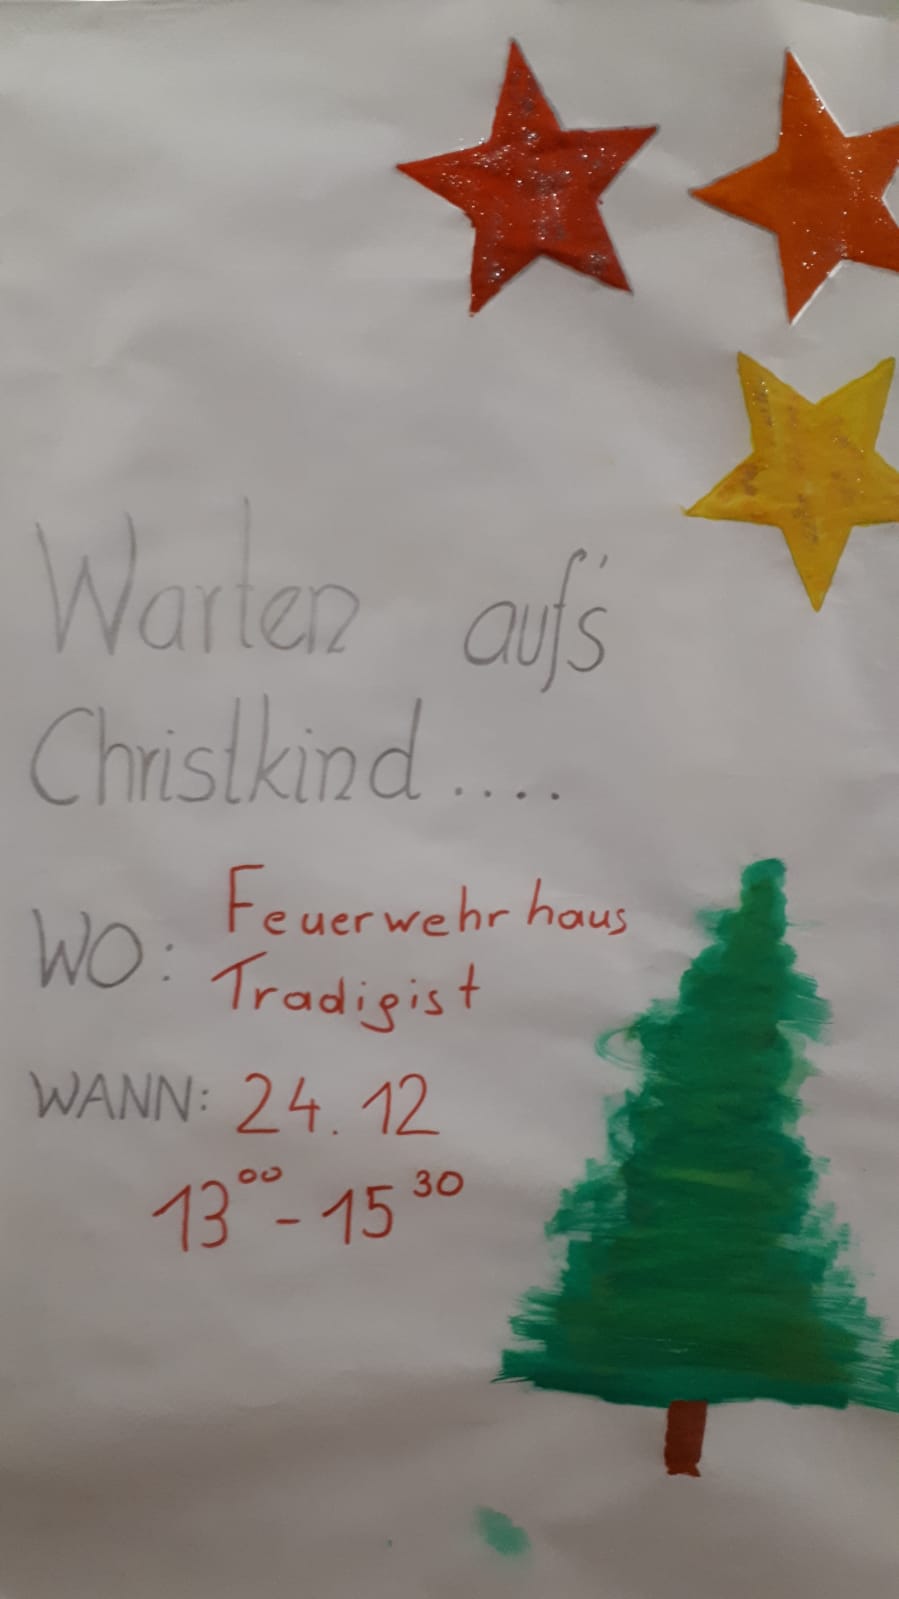 Warten auf's
Christkind....
WO: Feuerwehrhaus
Tradigist
WANN: 24.12
13⁰⁰-15³⁰